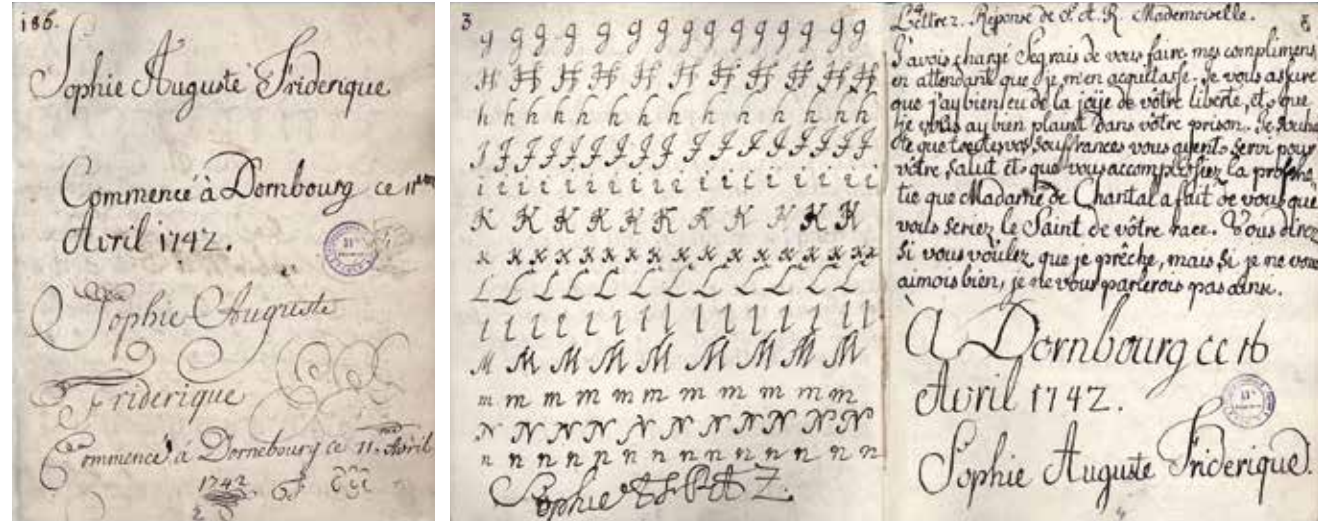 186.
Sophie Auguste Friderique
Commencé à Dornbourg ce 11me
Avril 1742.
Sophie Auguste
Friderique
Commencé à Dornebourg ce 11. Avril
1742
3
g g g g g g g g g g g g g
H H H H H H H H H H
h h h h h h h h h h h h
I I I I I I I I I I I I I
i i i i i i i i i i i i i
K K K K K K K K K K
k k k k k k k k k k k k k
L L L L L L L L L L L
l l l l l l l l l l l l l
M M M M M M M M M
m m m m m m m m m m
N N N N N N N N N N
n n n n n n n n n n n n n
Sophie
Lettre 2. Réponse de S. A. R. Mademoiselle.
J'avois chargé Segrais de vous faire mes complimens
en attendant que je m'en acquitasse. Je vous assure
que j'ay bien eu de la joije de vôtre liberté, et que
je vous ay bien plaint dans vôtre prison. Je souhai
te que toutes vos souffrances vous ayent servi pour
vôtre Salut et que vous accomplissiez la prophe
tie que Madame de Chantal a fait de vous que
vous seriez le Saint de vôtre race. Vous direz
Si vous voulez que je prêche, mais Si je ne vous
aimois bien, je ne vous parlerois pas ainsi.
À Dornbourg ce 16
Avril 1742.
Sophie Auguste Friderique.